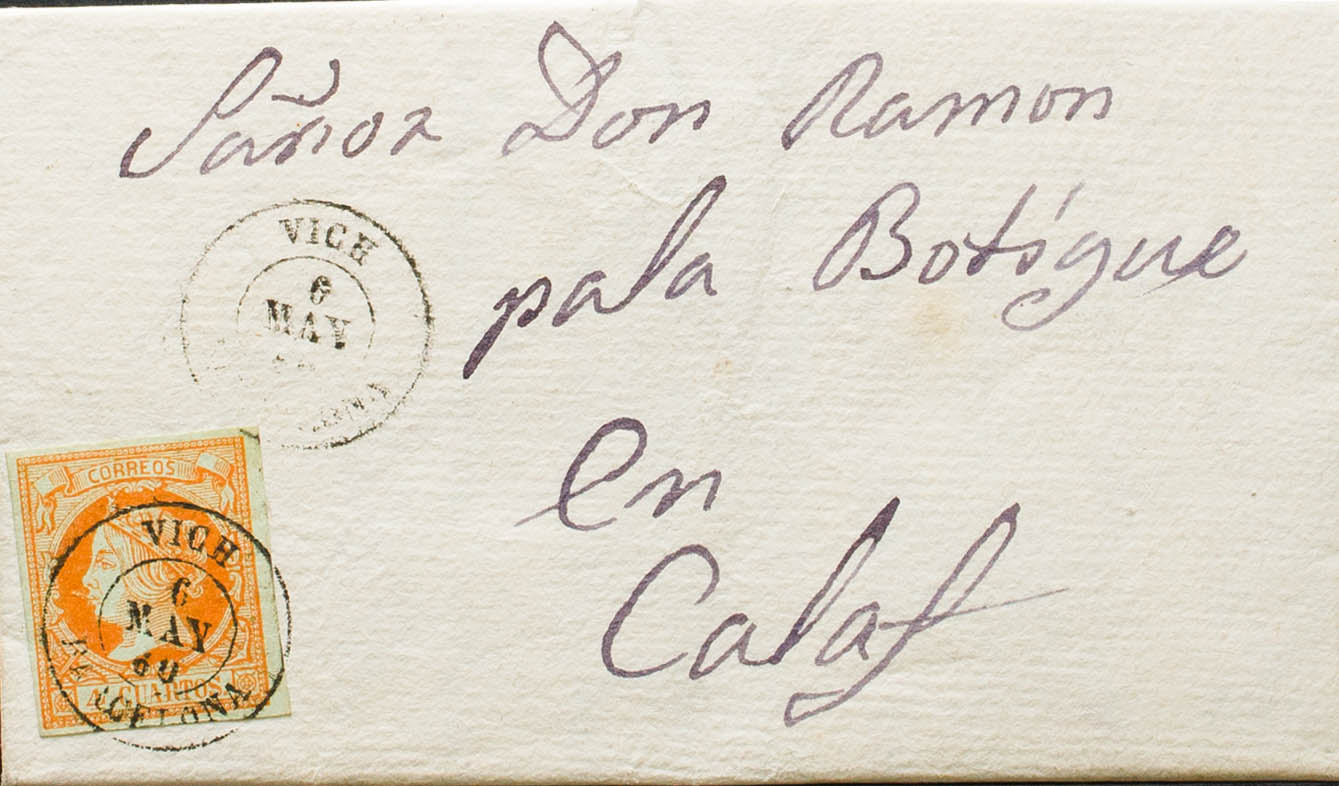 Sañor Don Ramon
pala Botígue
en
Calaf
VICH
6
MAY
CORREOS
VICH
6
MAY
60
BARCELONA
4 CUARTOS